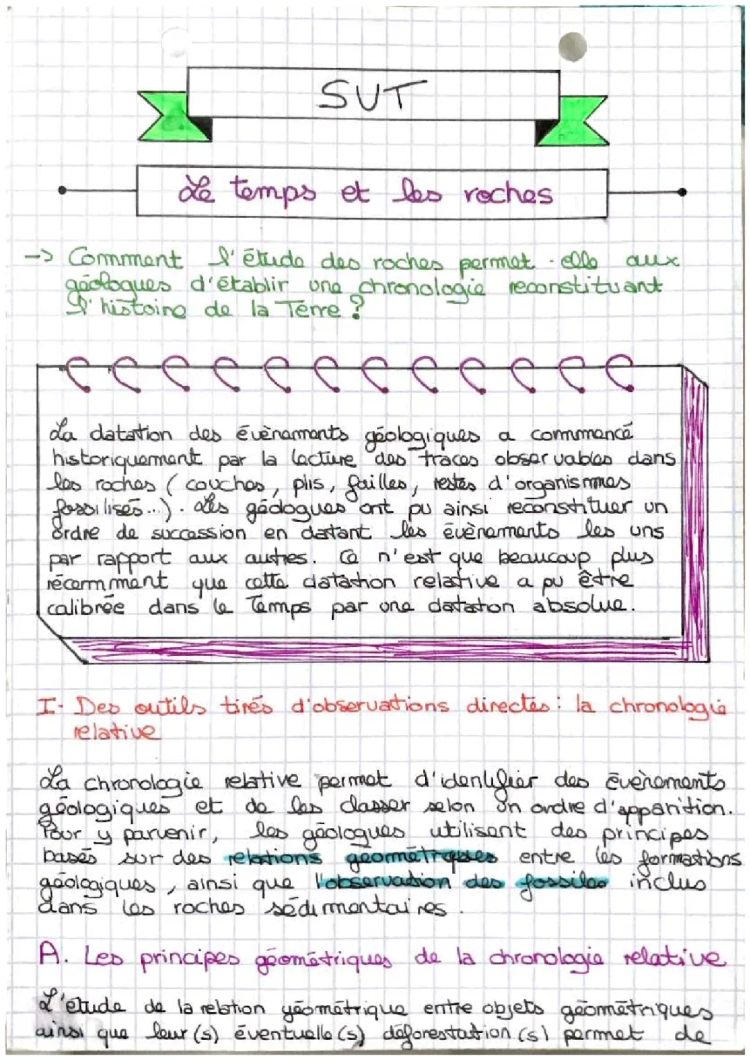 SVT
Le temps et les roches
-> Comment l'étude des roches permet-elle aux
géologues d'établir une chronologie reconstituant
l'histoire de la Terre ?
La datation des évènements géologiques a commencé
historiquement par la lecture des traces observables dans
les roches (couches, plis, failles, restes d'organismes
fossilisés...). Les géologues ont pu ainsi reconstituer un
ordre de succession en datant les évènements les uns
par rapport aux autres. Ce n'est que beaucoup plus
récemment que cette datation relative a pu être
calibrée dans le temps par une datation absolue.
I- Des outils tirés d'observations directes : la chronologie
relative
La chronologie relative permet d'identifier des évènements
géologiques et de les classer selon un ordre d'apparition.
Pour y parvenir, les géologues utilisent des principes
basés sur des relations géométriques entre les formations
géologiques, ainsi que l'observation des fossiles inclus
dans les roches sédimentaires.
A. Les principes géométriques de la chronologie relative
L'étude de la relation géométrique entre objets géométriques
ainsi que leur(s) éventuelle(s) déforestation(s) permet de